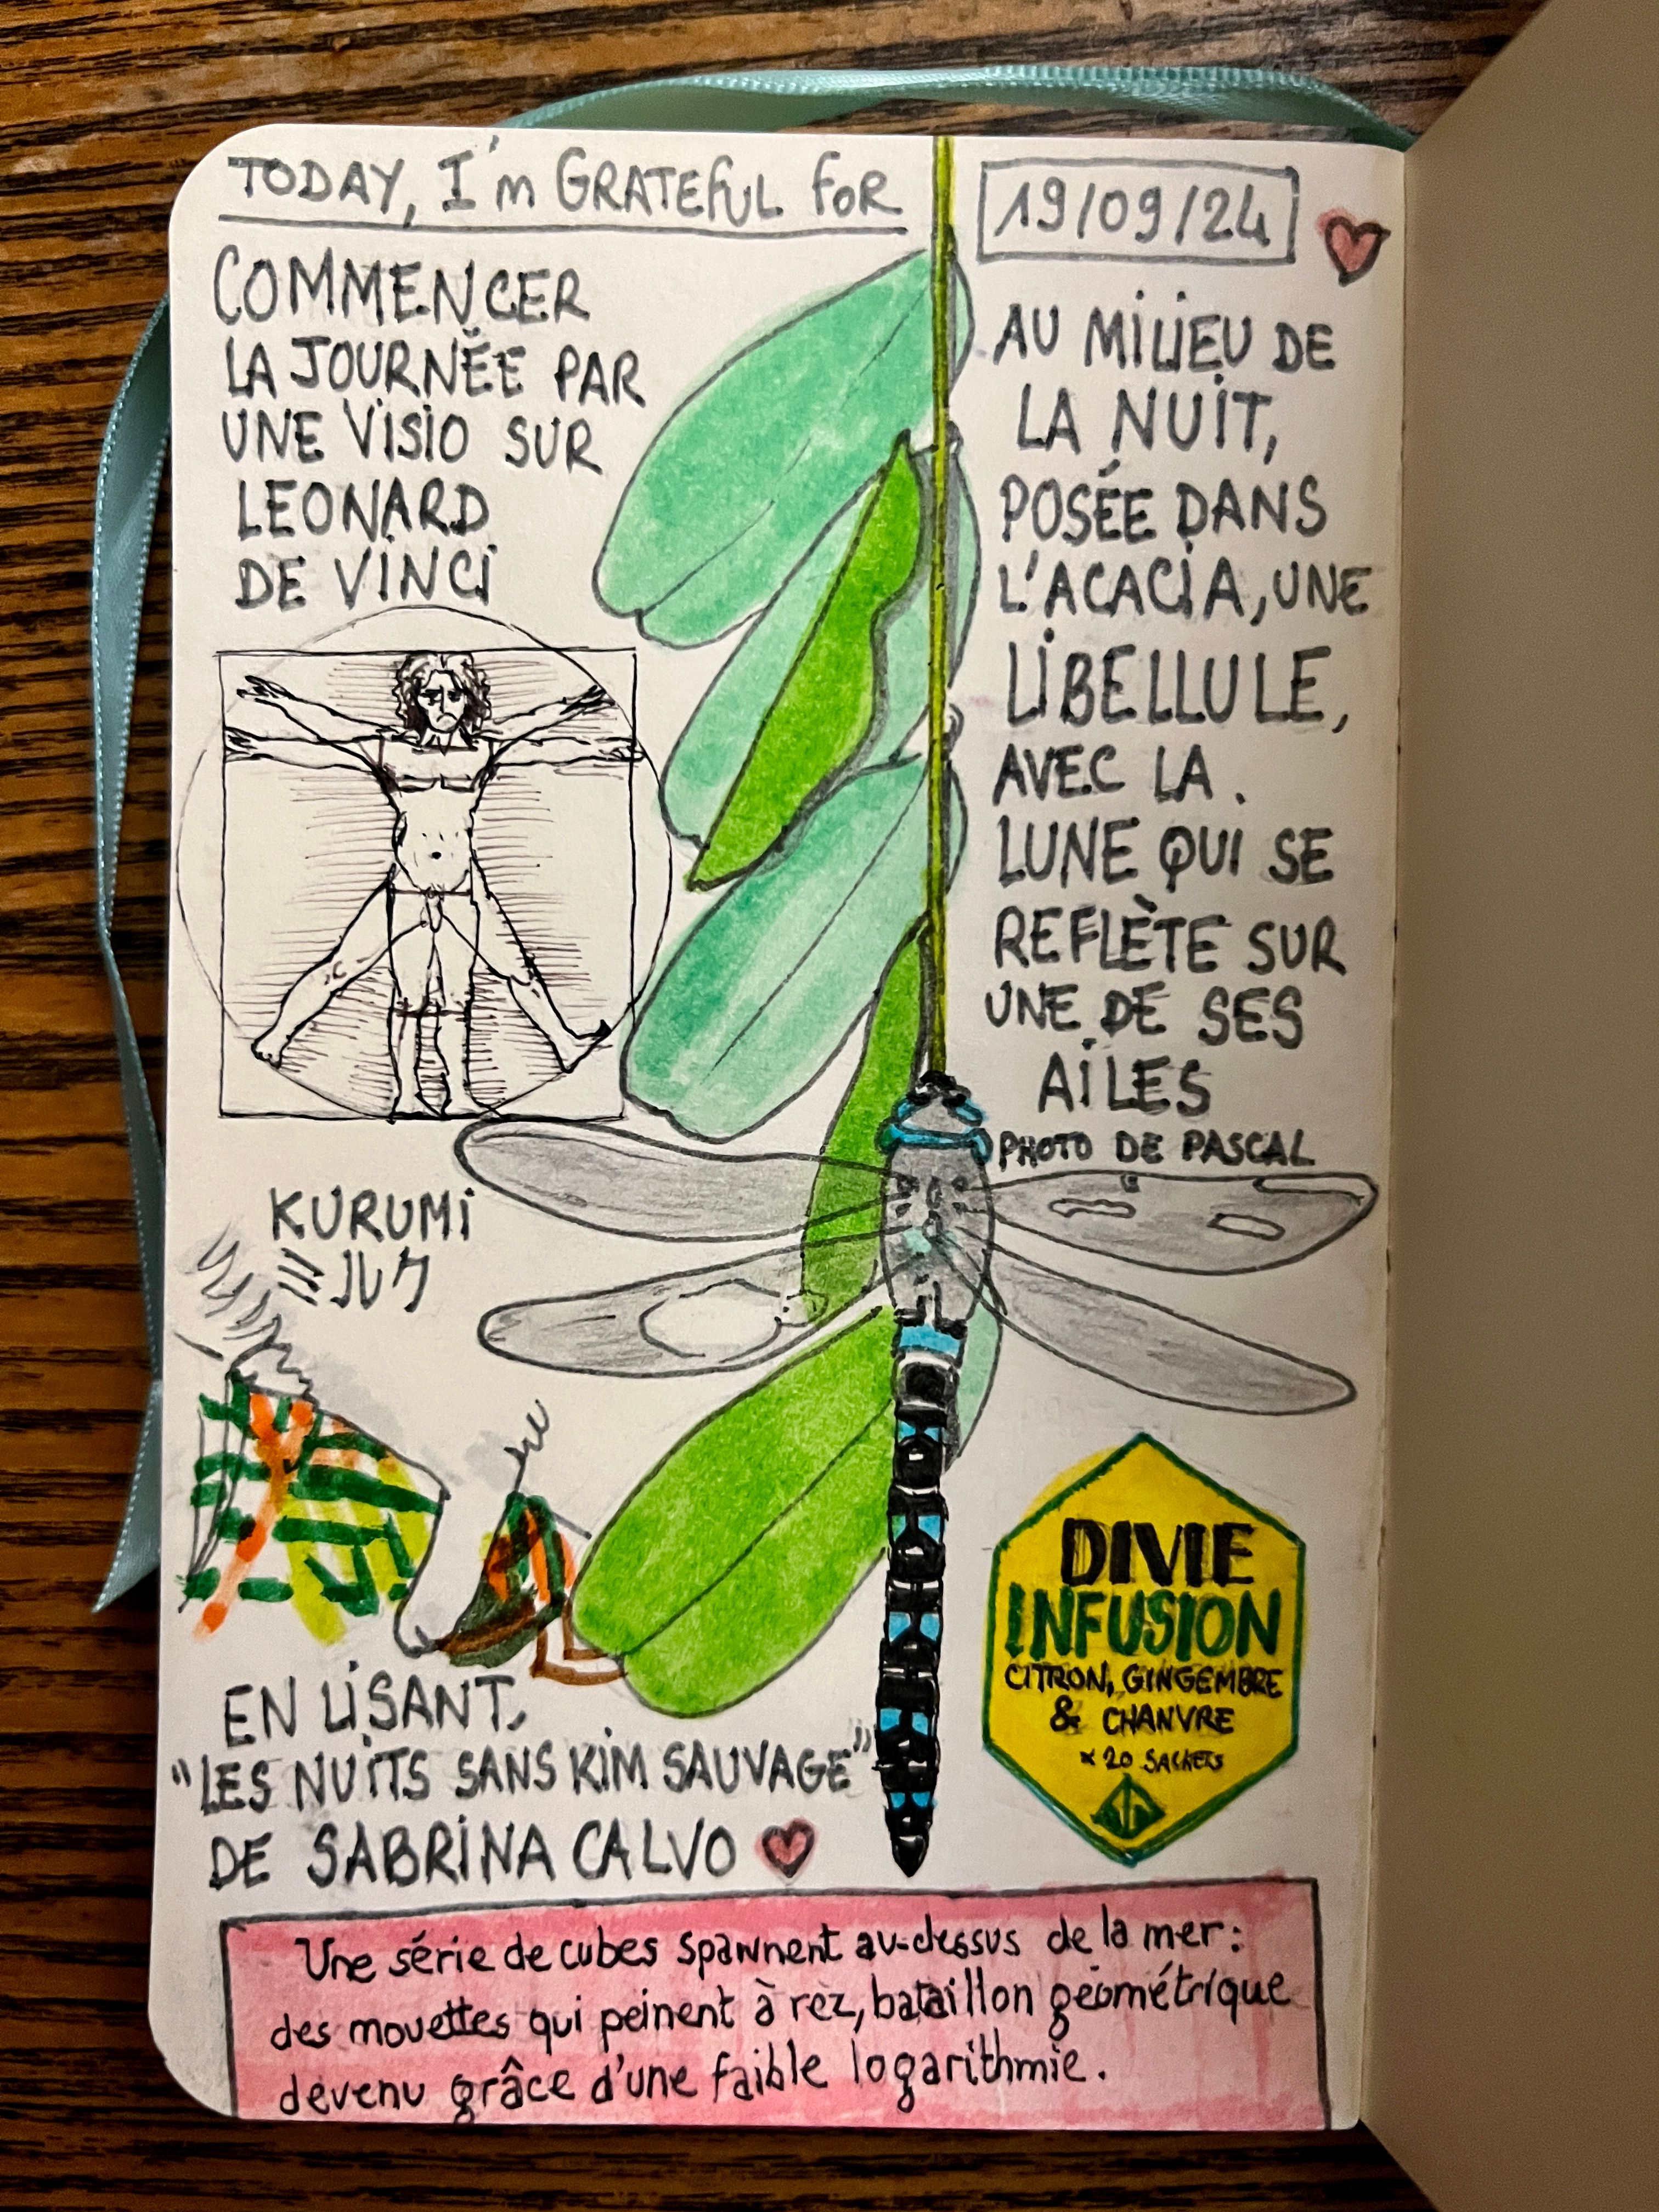 TODAY, I'm GRATEFUL FOR
19/09/24
COMMENCER
LA JOURNÉE PAR
UNE VISIO SUR
LEONARD
DE VINCI
AU MILIEU DE
LA NUIT,
POSÉE DANS
L'ACACIA, UNE
LIBELLULE,
AVEC LA
LUNE QUI SE
REFLÈTE SUR
UNE DE SES
AILES
PHOTO DE PASCAL
KURUMI
ミルク
DIVIE
INFUSION
CITRON, GINGEMBRE
& CHANVRE
x 20 SACHETS
EN LISANT,
"LES NUITS SANS KIM SAUVAGE"
DE SABRINA CALVO
Une série de cubes spawnent au-dessus de la mer :
des mouettes qui peinent à rez, bataillon géométrique
devenu grâce d'une faible logarithmie.